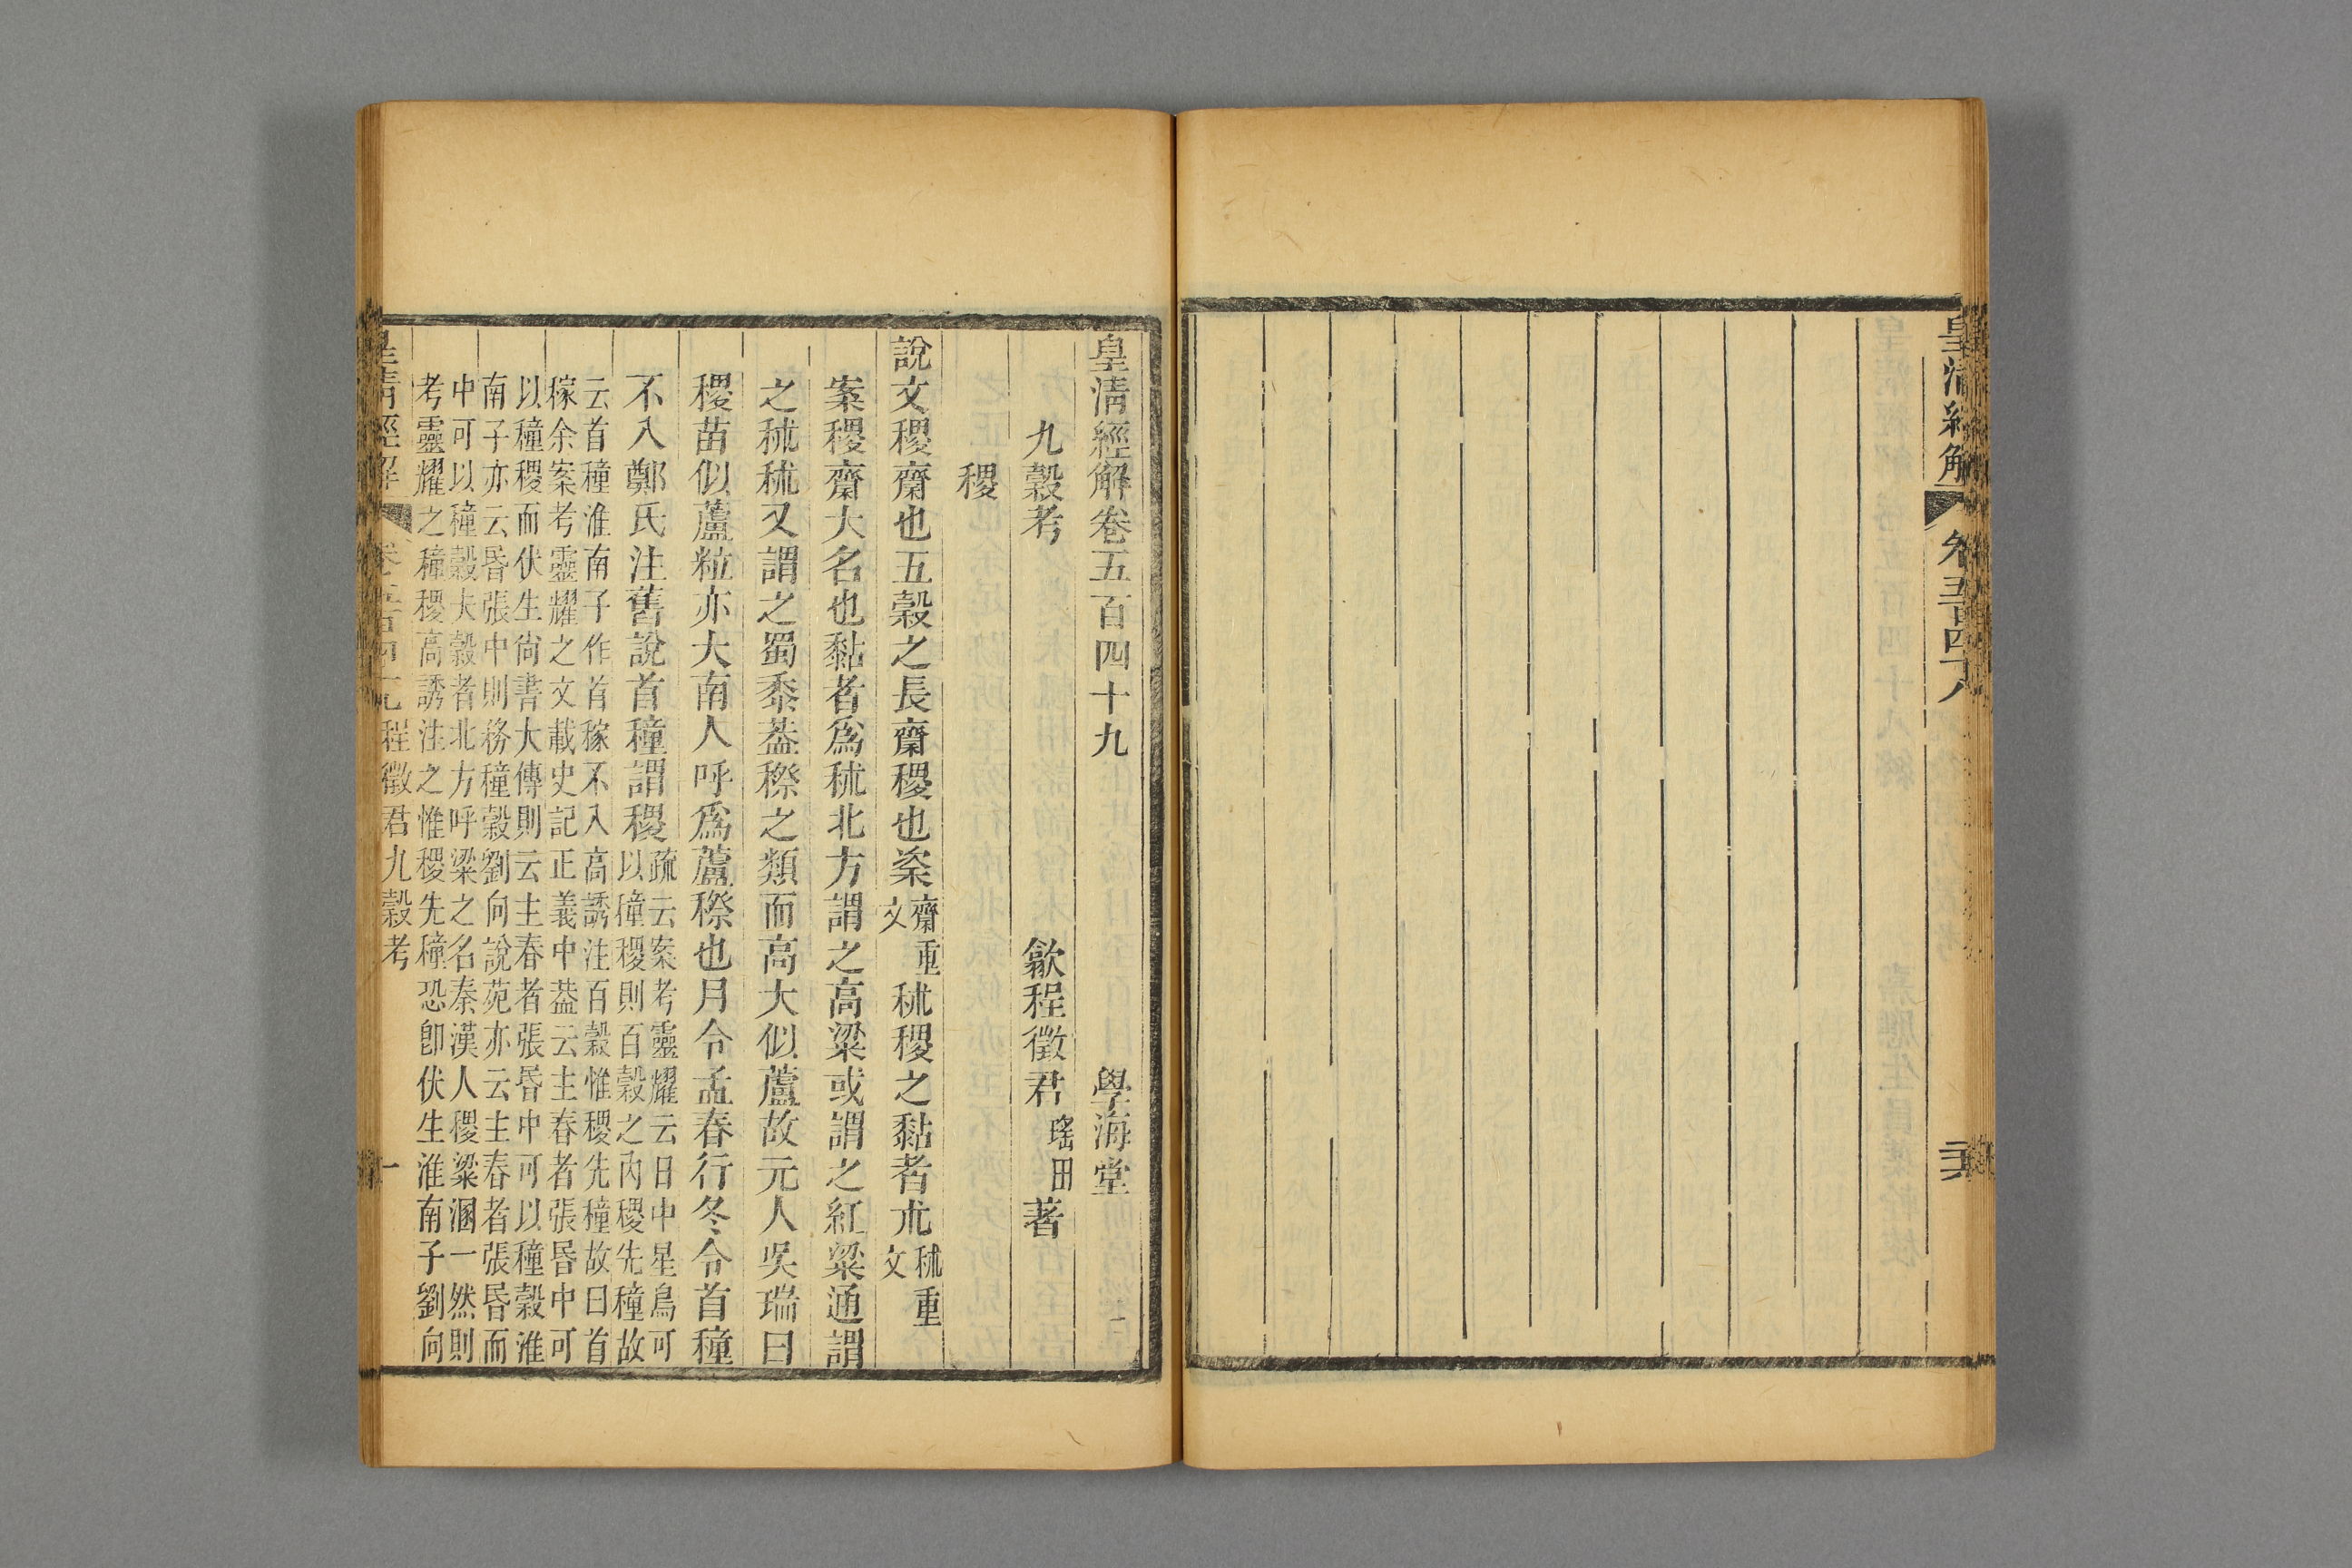 皇清經解
卷五百四十八
皇清經解卷五百四十九
學海堂
九穀考
歙程徵君瑤田著
稷
說文稷齋也五穀之長齋稷也粢齋重文秫稷之黏者朮秫重文
案稷齋大名也黏者爲秫北方謂之高粱或謂之紅粱通謂
之秫秫又謂之蜀黍葢穄之類而高大似蘆故元人吳瑞曰
稷苗似蘆粒亦大南人呼爲蘆穄也月令孟春行冬令首種
不入鄭氏注舊說首種謂稷疏云案考靈耀云日中星鳥可
以種稷則百穀之內稷先種故
云首種淮南子作首稼不入高誘注百穀惟稷先種故曰首
稼余案考靈耀之文載史記正義中葢云主春者張昏中可
以種稷而伏生尙書大傳則云主春者張昏中可以種穀淮
南子亦云昏張中則務種穀劉向說苑亦云主春者張昏而
中可以種穀大穀者北方呼粱之名秦漢人稷粱溷一然則
考靈耀之種稷高誘注之惟稷先種恐卽伏生淮南子劉向
皇清經解
卷五百四十九
程徵君九穀考
一